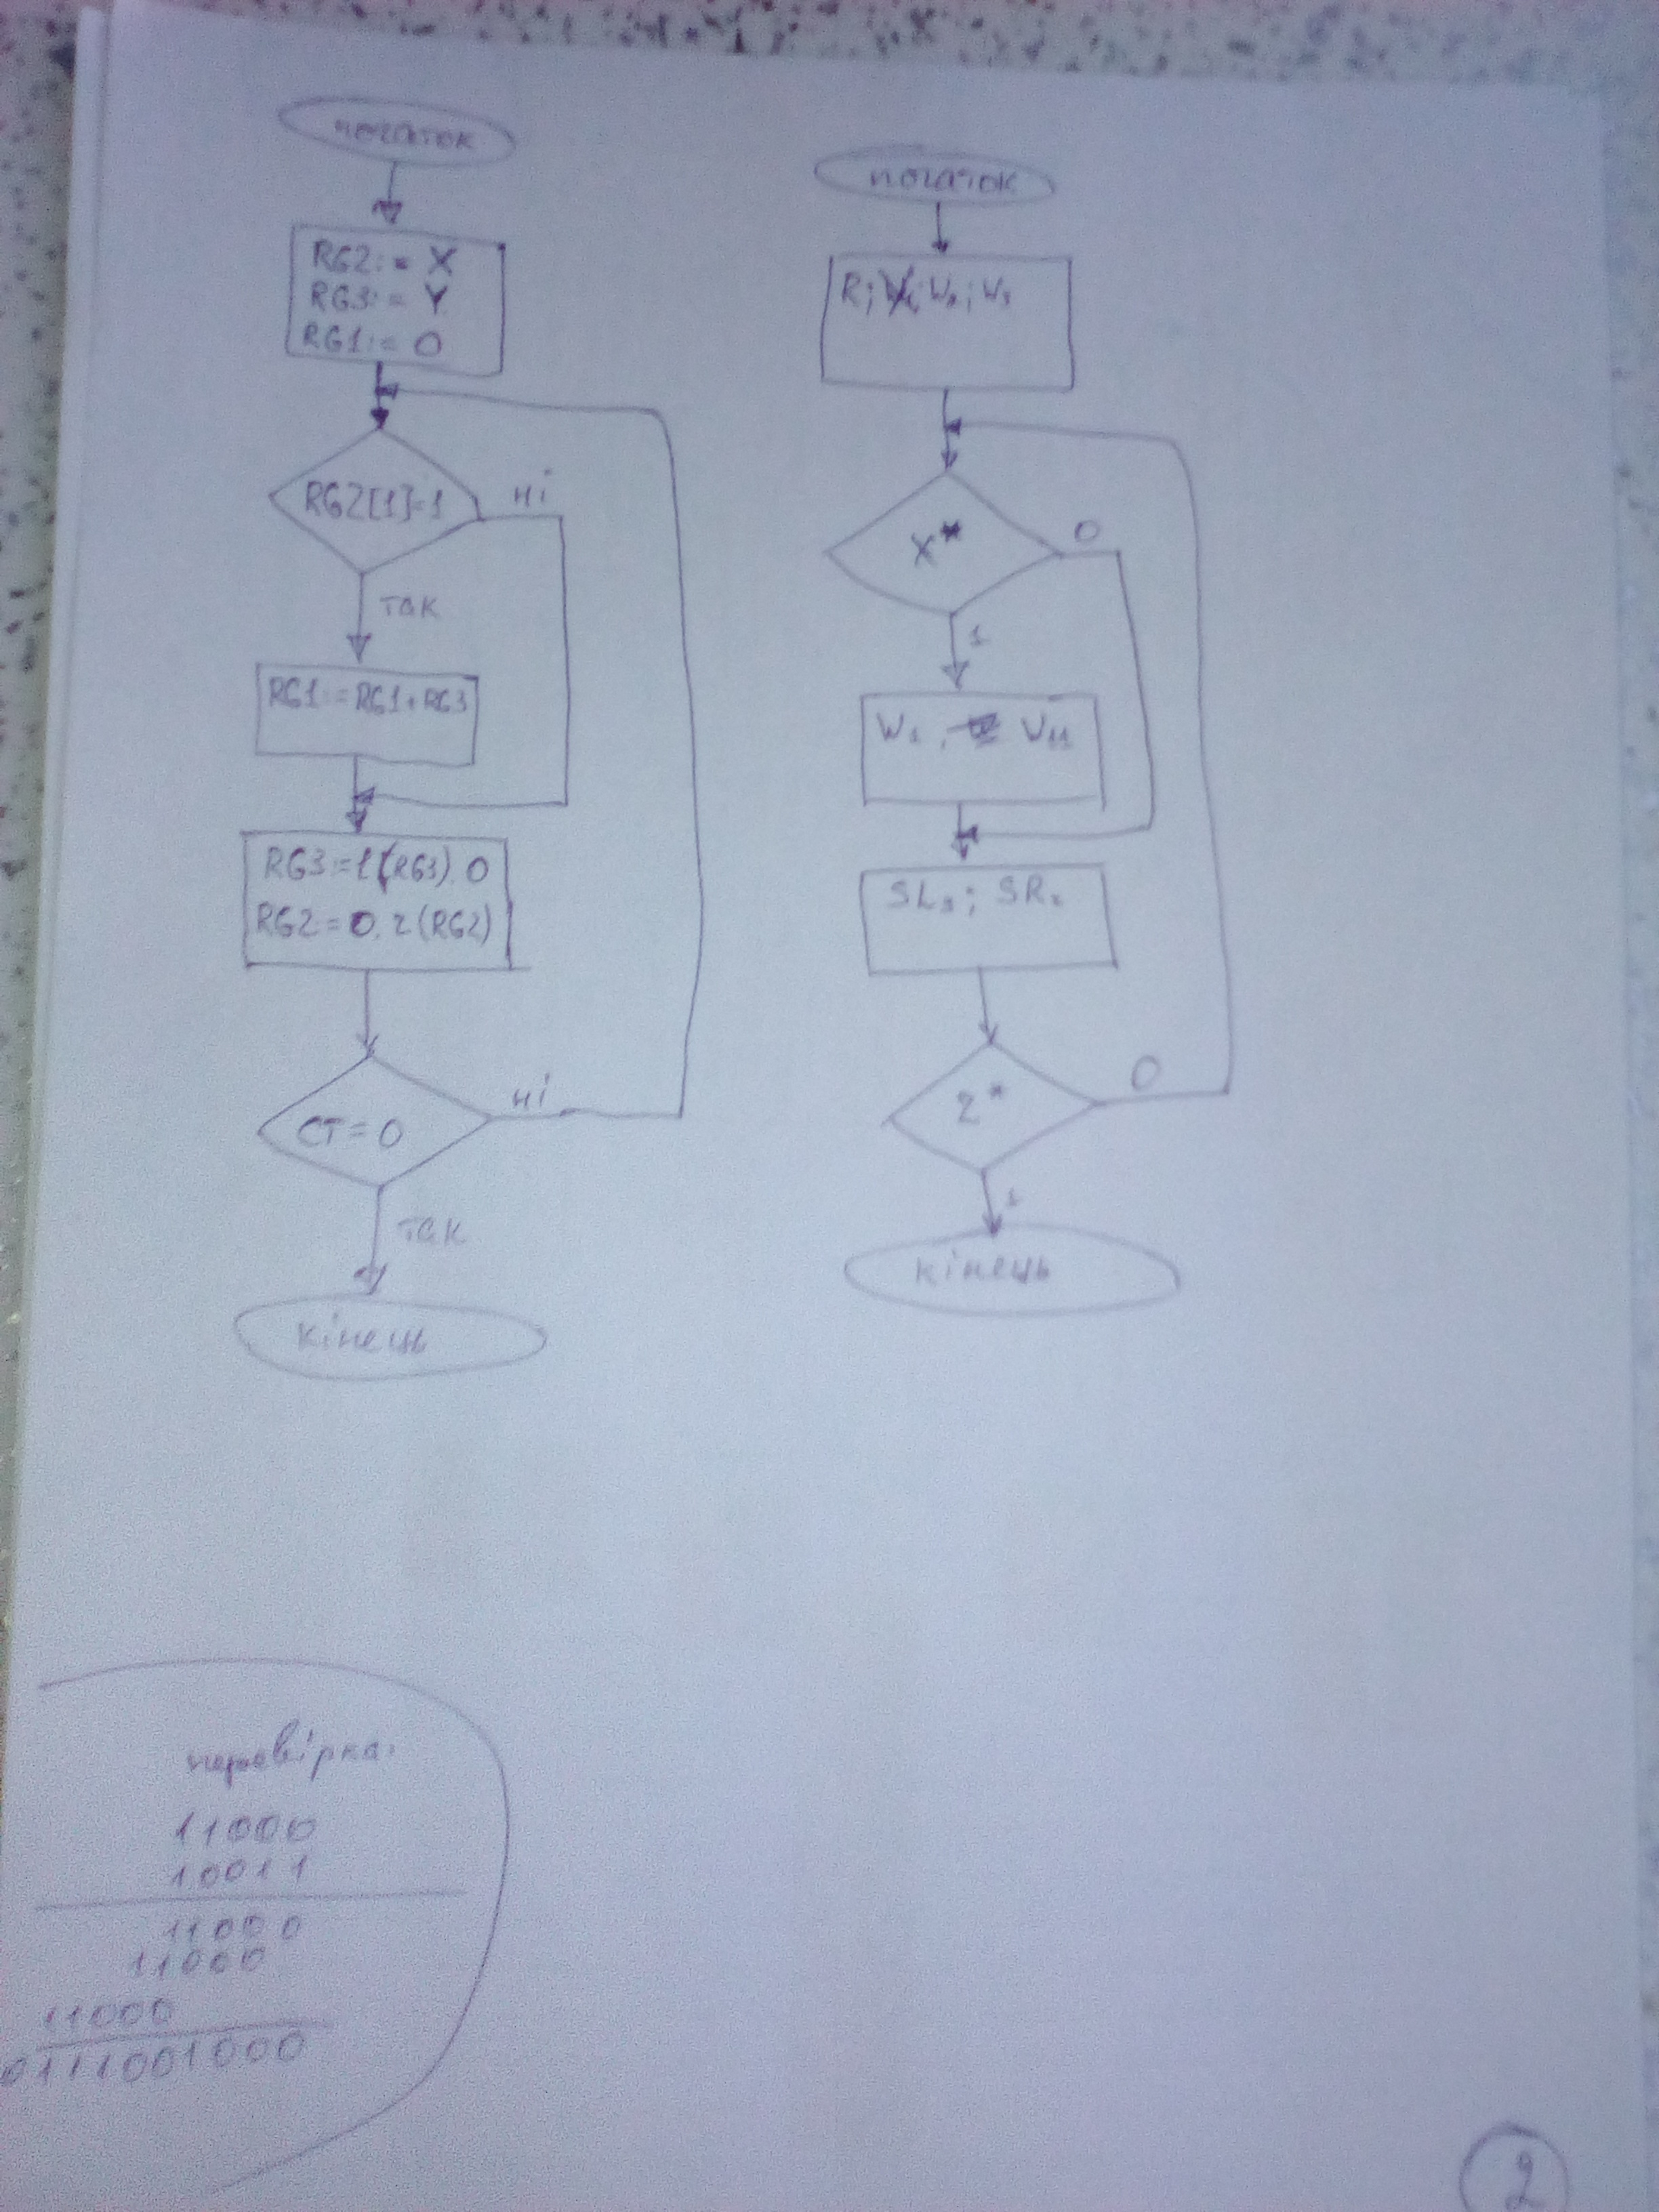 початок
RG2:= X
RG3:= Y
RG1:= 0
RG2[1]=1
ні
так
RG1:=RG1+RG3
RG3:=l(RG3).0
RG2:=0.r(RG2)
CT=0
ні
так
кінець
початок
R; W2; W3
X*
0
1
W1, U11
SL3; SR2
Z*
0
1
кінець
перевірка:
11000
10011
11000
11000
11000
0111001000
2